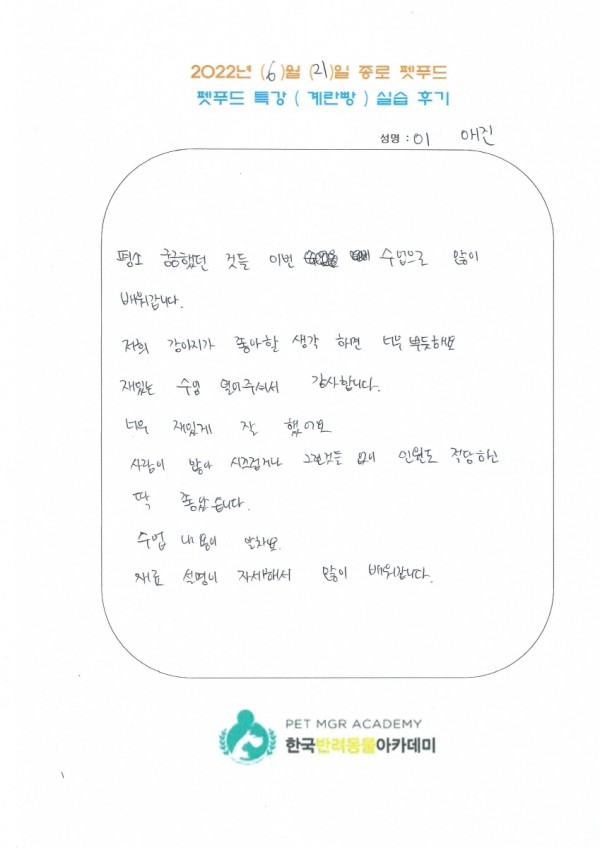 2022년 (6)월 (21)일 종로 펫푸드
펫푸드 특강 ( 계란빵 ) 실습 후기
성명 : 이 애진
평소 궁금했던 것들 이번 수업으로 많이
배워갑니다.
저희 강아지가 좋아할 생각 하면 너무 뿌듯해요
재밌는 수업 열어주셔서 감사합니다.
너무 재밌게 잘 했어요
사람이 많아 시끄럽거나 그런것들 없이 인원도 적당하니
딱 좋았습니다.
수업 내용이 알차요.
재료 설명이 자세해서 많이 배워갑니다.
PET MGR ACADEMY
한국반려동물아카데미